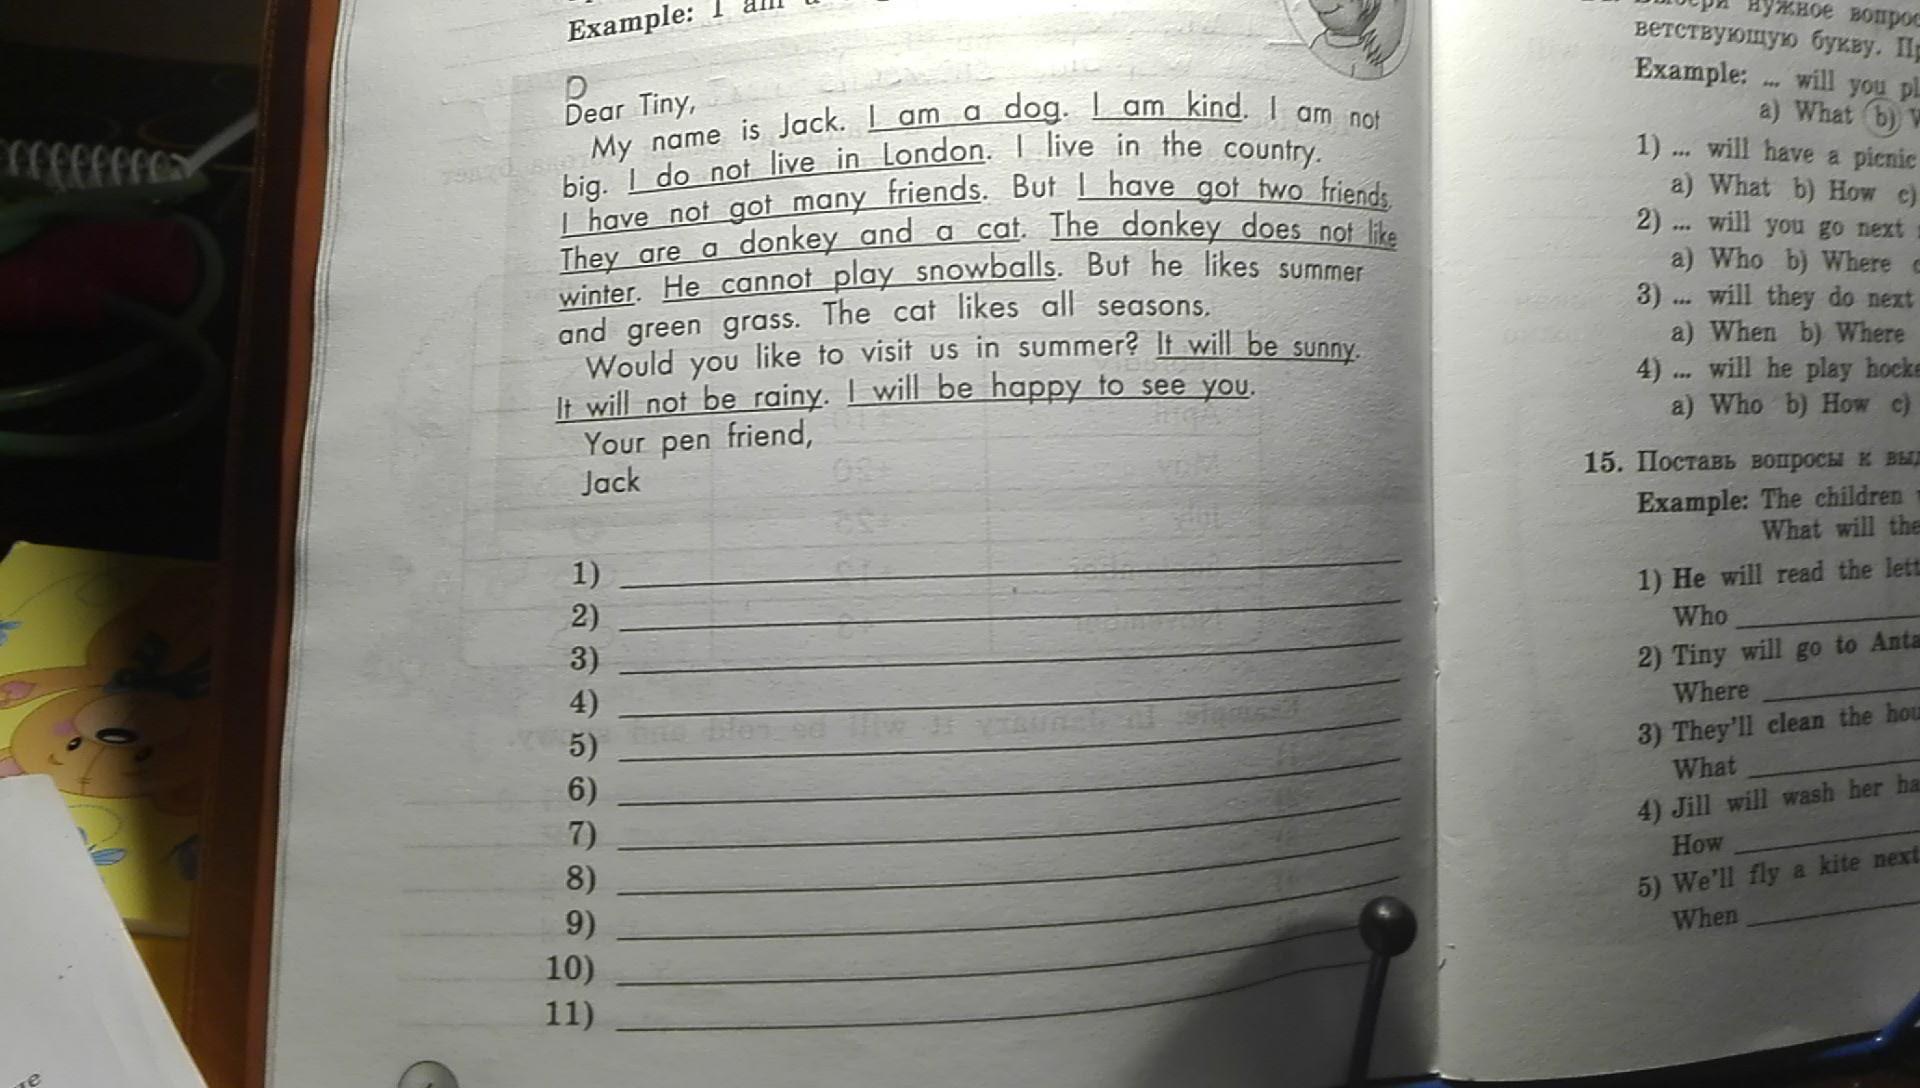 Example: I am a
D
Dear Tiny,
My name is Jack. I am a dog. I am kind. I am not
big. I do not live in London. I live in the country.
I have not got many friends. But I have got two friends.
They are a donkey and a cat. The donkey does not like
winter. He cannot play snowballs. But he likes summer
and green grass. The cat likes all seasons.
Would you like to visit us in summer? It will be sunny.
It will not be rainy. I will be happy to see you.
Your pen friend,
Jack
1)
2)
3)
4)
5)
6)
7)
8)
9)
10)
11)
нужное
ветствующую букву.
Example: ... will you
a) What b)
1) ... will have a picnic
a) What b) How c)
2) ... will you go next
a) Who b) Where
3) ... will they do next
a) When b) Where
4) ... will he play
a) Who b) How c)
15. Поставь вопросы к
Example: The children
What will
1) He will read the
Who
2) Tiny will go to
Where
3) They'll clean the
What
4) Jill will wash her
How
5) We'll fly a kite next
When